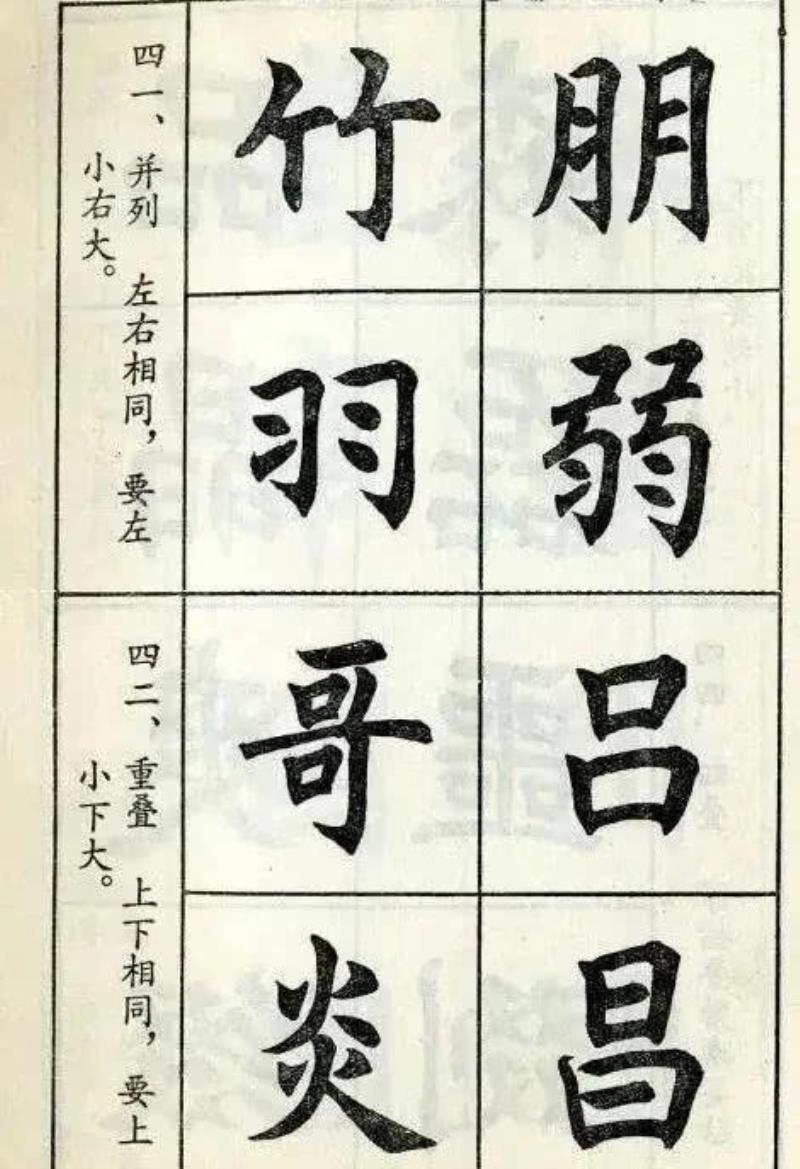 四一、并列 左右相同，要左
小右大。
朋 竹
弱 羽
四二、重叠 上下相同，要上
小下大。
吕 哥
昌 炎